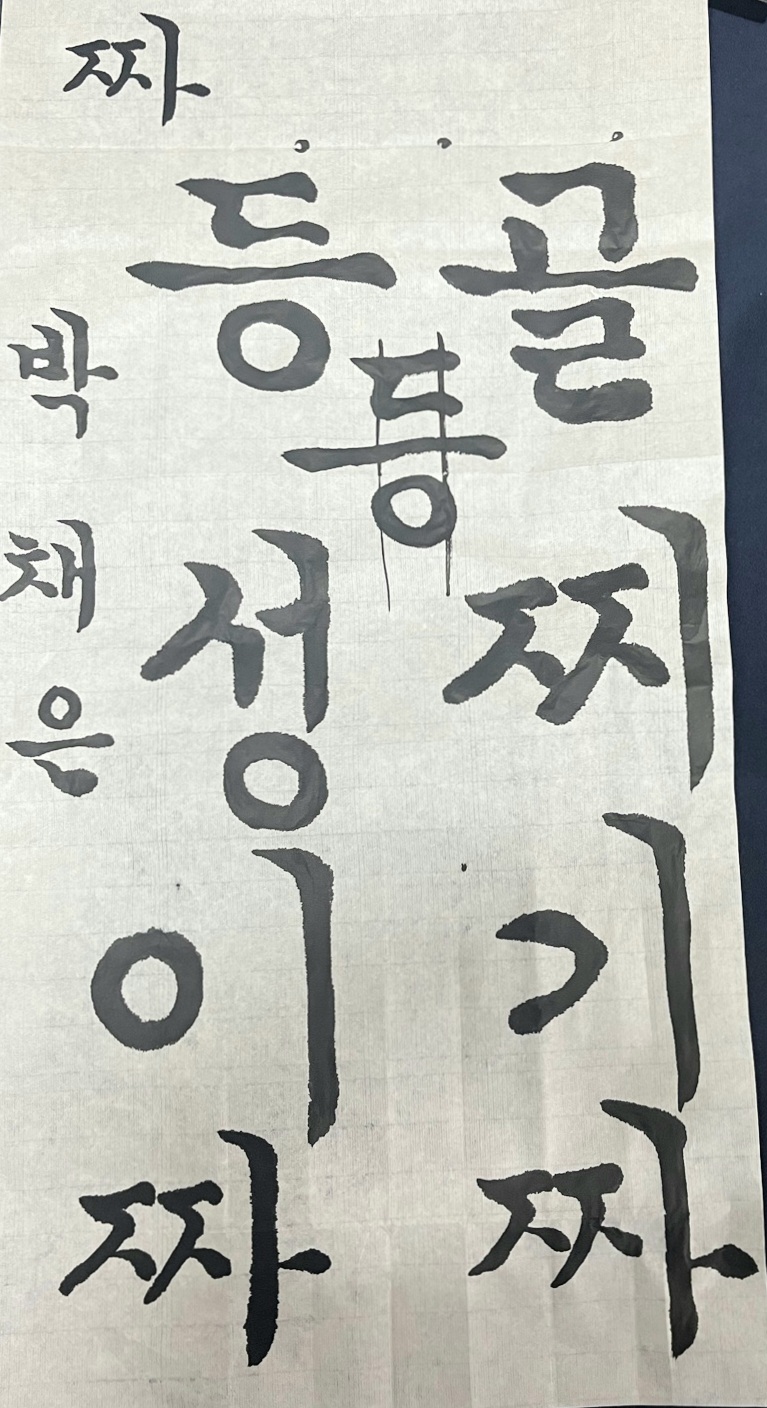 골찌기짜
등
등성이짜
짜
박채은